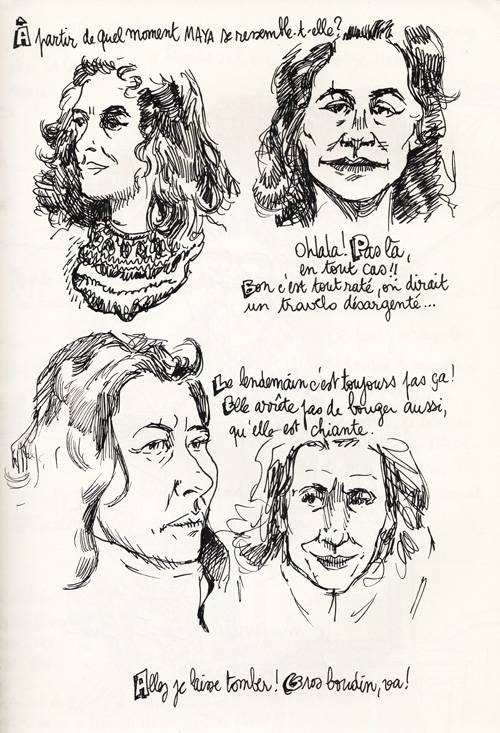 À partir de quel moment MAYA se ressemble-t-elle?
Ohlala! Pas là,
en tout cas!!
Bon c'est tout raté, on dirait
un travelo désargenté...
Le lendemain c'est toujours pas ça!
Elle arrête pas de bouger aussi,
qu'elle est chiante.
Allez je laisse tomber! Gros boudin, va!